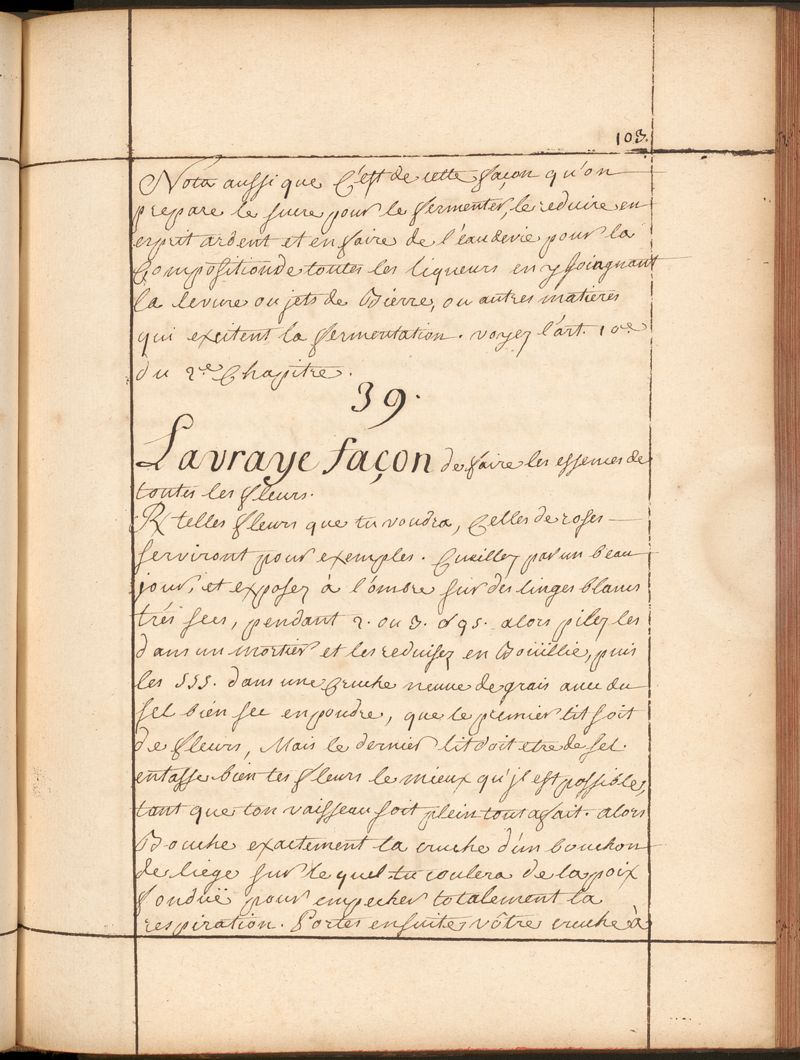 103.
Nota aussi que C'est de cette façon qu'on
prepare le sucre pour le fermenter, le reduire en
esprit ardent et en faire de l'eau de vie pour la
Composition de toutes les liqueurs en y joignant
la levure ou jets de Bierre, ou autres matieres
qui excitent la fermentation. voyez l'art. 10e
du 2.e Chapitre.
39.
La vraye façon de faire les essences de
toutes les fleurs.
℞ telles fleurs que tu voudra, Celles de roses
serviront pour exemples. Cueillez par un beau
jour, et exposez à l'ombre sur des linges blancs
trés secs, pendant 2. ou 3. alors pilez les
dans un mortier et les reduisez en Boüillie, puis
les SSS. dans une Cruche neuve de grais avec du
sel bien sec en poudre, que le premier lit soit
de fleurs, Mais le dernier lit doit etre de sel.
entasse bien tes fleurs le mieux qu'jl est possible,
tant que ton vaisseau soit plein tout a fait. alors
Bouche exactement la cruche d'un bouchon
de liege sur le quel tu coulera de la poix
fonduë pour empecher totalement la
respiration. Portes ensuites vôtre cruche à